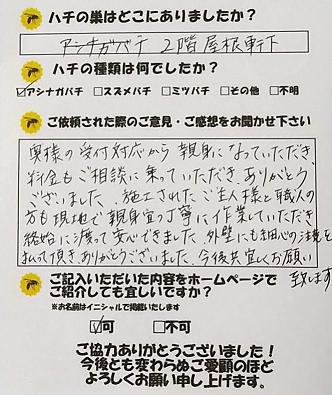 ハチの巣はどこにありましたか？
アシナガバチ 2階屋根軒下
ハチの種類は何でしたか？
☑アシナガバチ □スズメバチ □ミツバチ □その他 □不明
ご依頼された際のご意見・ご感想をお聞かせ下さい
奥様の受付対応から親身になっていただき、
料金もご相談に乗っていただきありがとう
ございました。施工されたご主人様と職人の
方も現地で親身且つ丁寧に作業していただき
終始に渡って安心できました。外壁にも細心の注意を
払って頂きありがとうございました。今後共宜しくお願い
致します
ご記入いただいた内容をホームページで
ご紹介しても宜しいですか？
※お名前はイニシャルで掲載いたします
☑可 □不可
ご協力ありがとうございました！
今後とも変わらぬご愛顧のほど
よろしくお願い申し上げます。